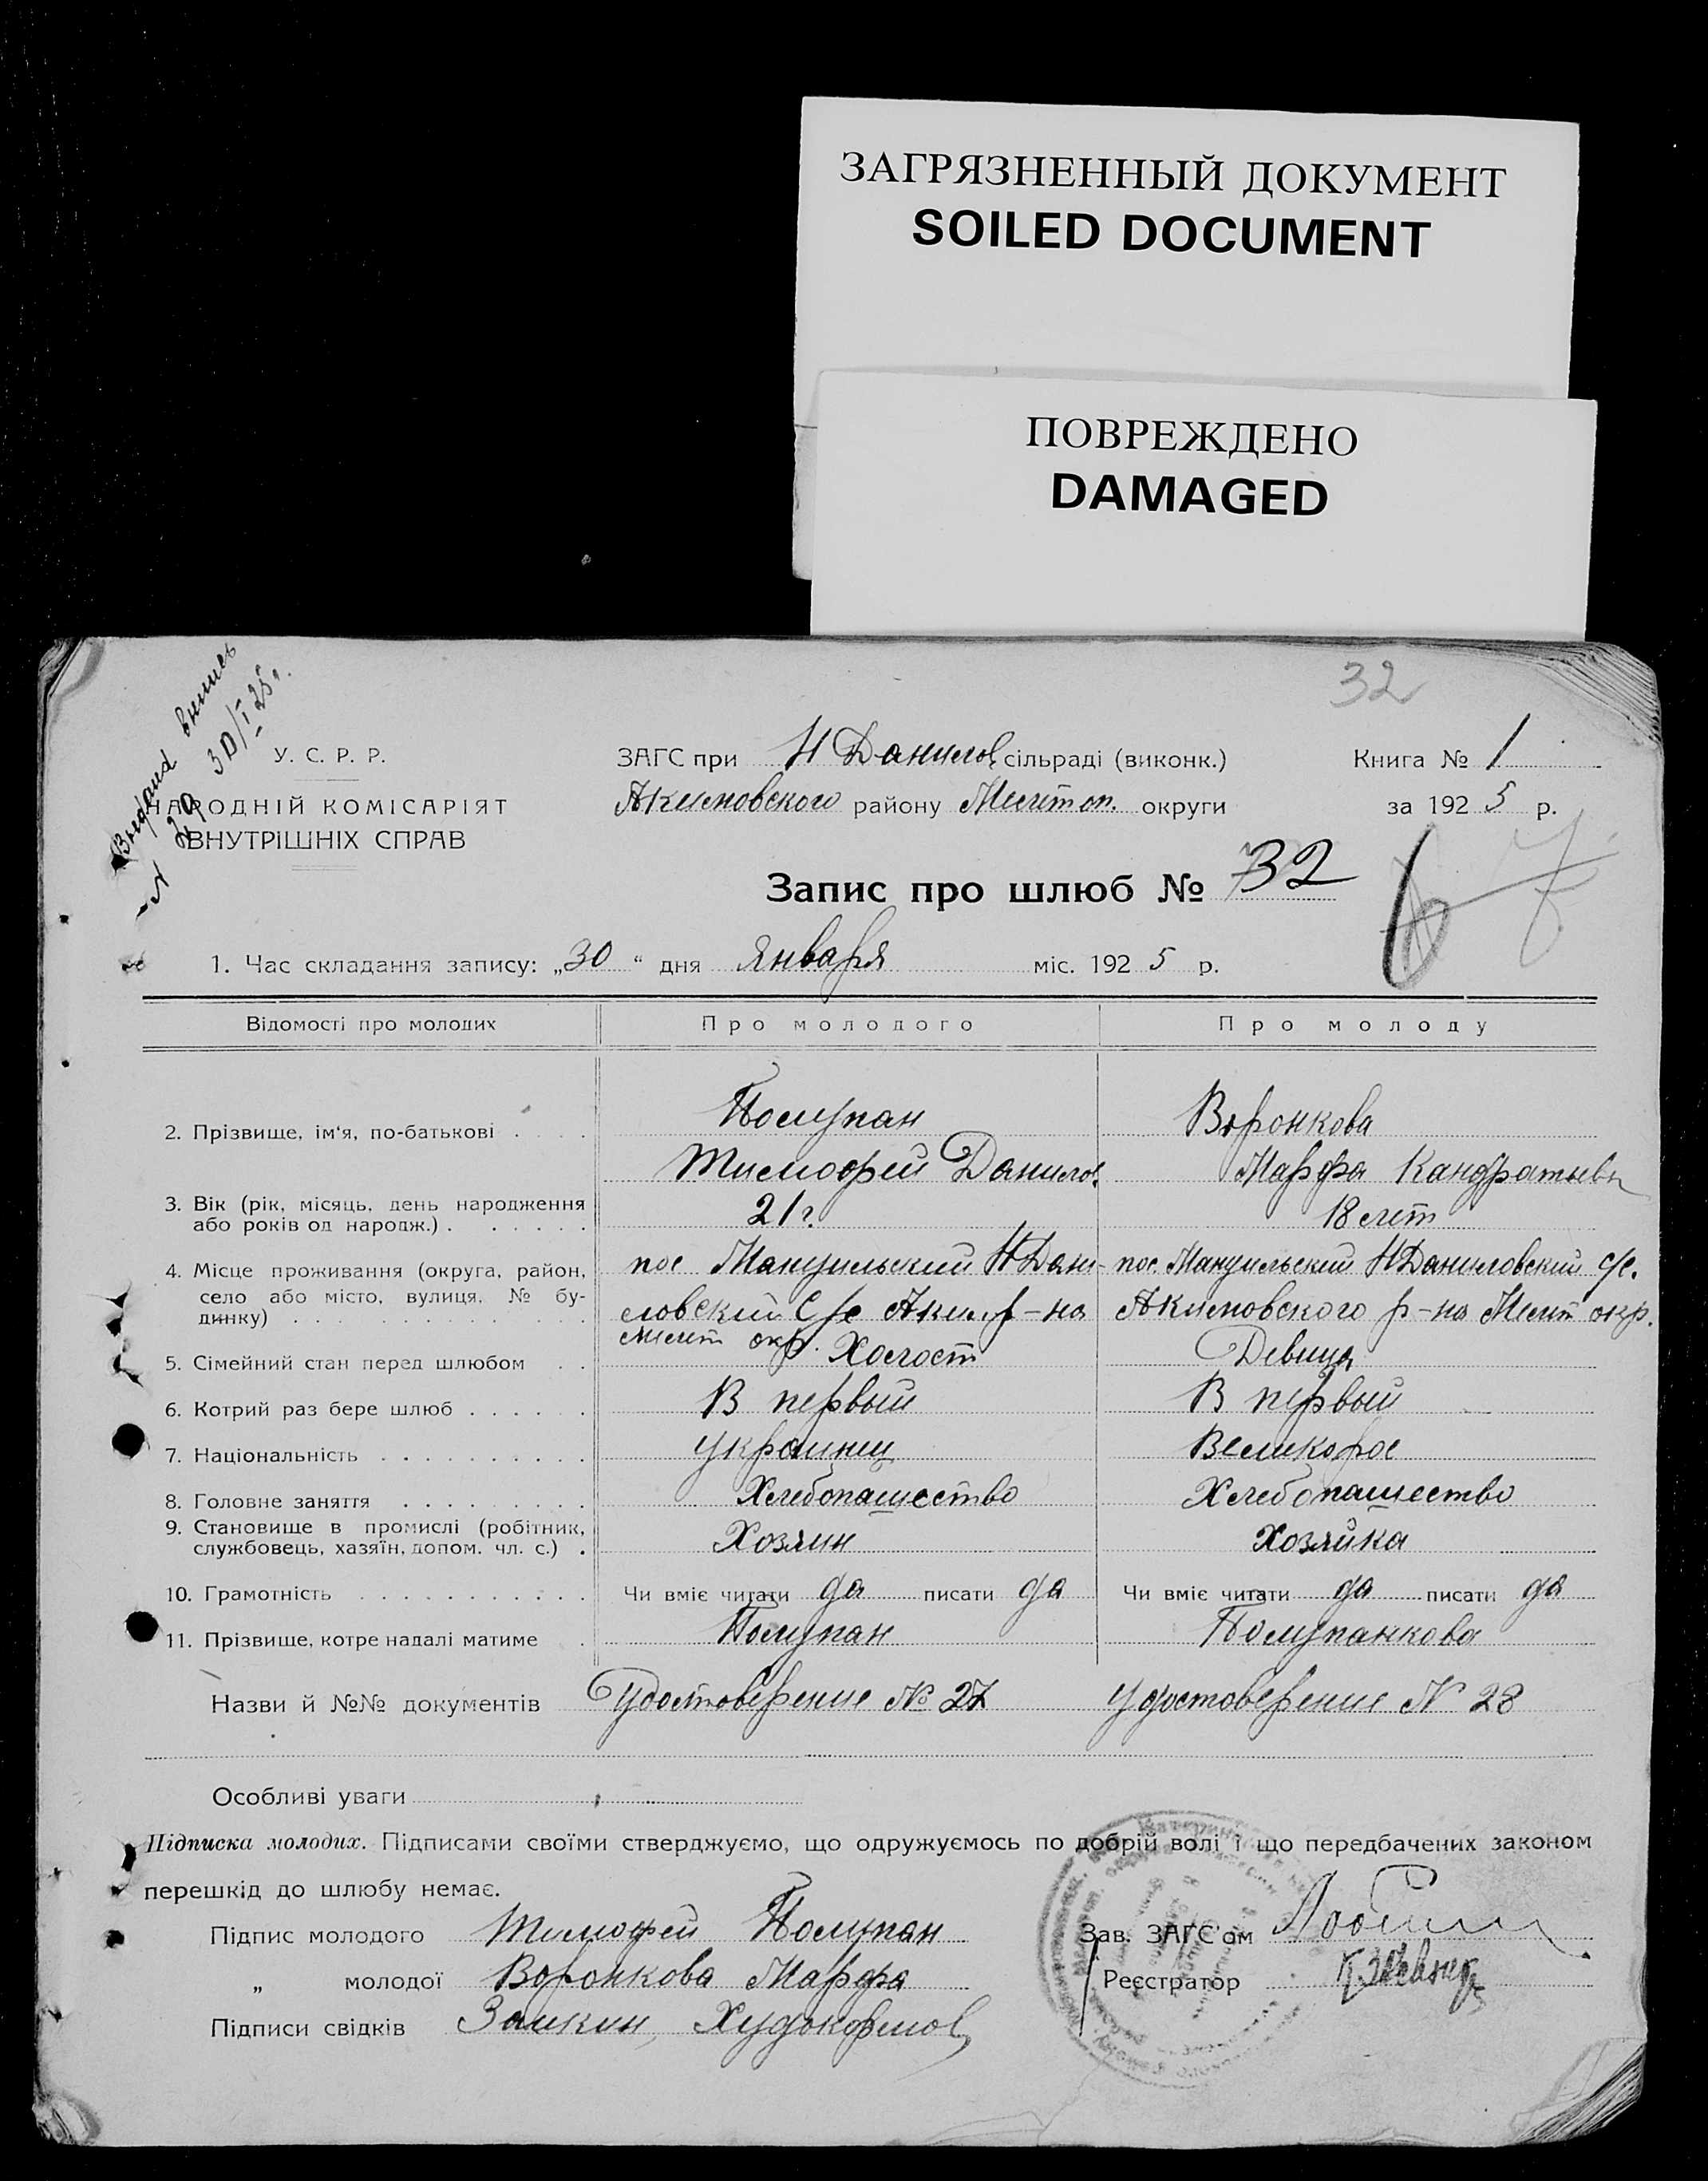 ЗАГРЯЗНЕННЫЙ ДОКУМЕНТ
SOILED DOCUMENT
ПОВРЕЖДЕНО
DAMAGED
32
Выдана выпись
№ 29 30/I 25 г.
У. С. Р. Р.
НАРОДНІЙ КОМІСАРІЯТ
ВНУТРІШНІХ СПРАВ
ЗАГС при Н Данилов сільраді (виконк.)
Акимовского району Мелитоп. округи
Книга № 1
за 1925 р.
Запис про шлюб № 32
1. Час складання запису: „30“ дня Января міс. 1925 р.
Відомості про молодих Про молодого Про молоду
2. Прізвище, ім‘я, по-батькові Полупан Воронкова
Тимофей Данилов. Марфа Кандратьевн
3. Вік (рік, місяць, день народження
або років од народж.) 21 г. 18 лет
4. Місце проживання (округа, район,
село або місто, вулиця, № бу-
динку)
пос Мануильский Н Дани-
ловский С/с Аким р-на
Мелит окр.
пос. Мануильский Н Даниловский с/с.
Акимовского р-на Мелит окр.
5. Сімейний стан перед шлюбом Холост Девица
6. Котрий раз бере шлюб В первый В первый
7. Національність Украинец Великорос
8. Головне заняття Хлебопашество Хлебопашество
9. Становище в промислі (робітник,
службовець, хазяїн, допом. чл. с.) Хозяин Хозяйка
10. Грамотність Чи вміє читати да писати да Чи вміє читати да писати да
11. Прізвище, котре надалі матиме Полупан Полупанкова
Назви й №№ документів Удостоверение № 27 Удостоверение № 28
Особливі уваги
Підписка молодих. Підписами своїми стверджуємо, що одружуємось по добрій волі і що передбачених законом
перешкід до шлюбу немає.
Підпис молодого Тимофей Полупан
„ молодої Воронкова Марфа
Підписи свідків Заикин, Худокормов
Зав. ЗАГС'ом
Реєстратор